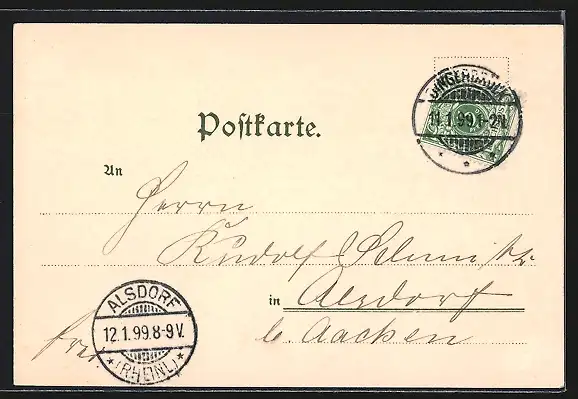 11.1.99.1-2N.
Postkarte.
An
Herrn
Rudolf Schmitz
in Alsdorf
b. Aachen
frei.
ALSDORF
12.1.99.8-9V.
*(RHEINL.)*